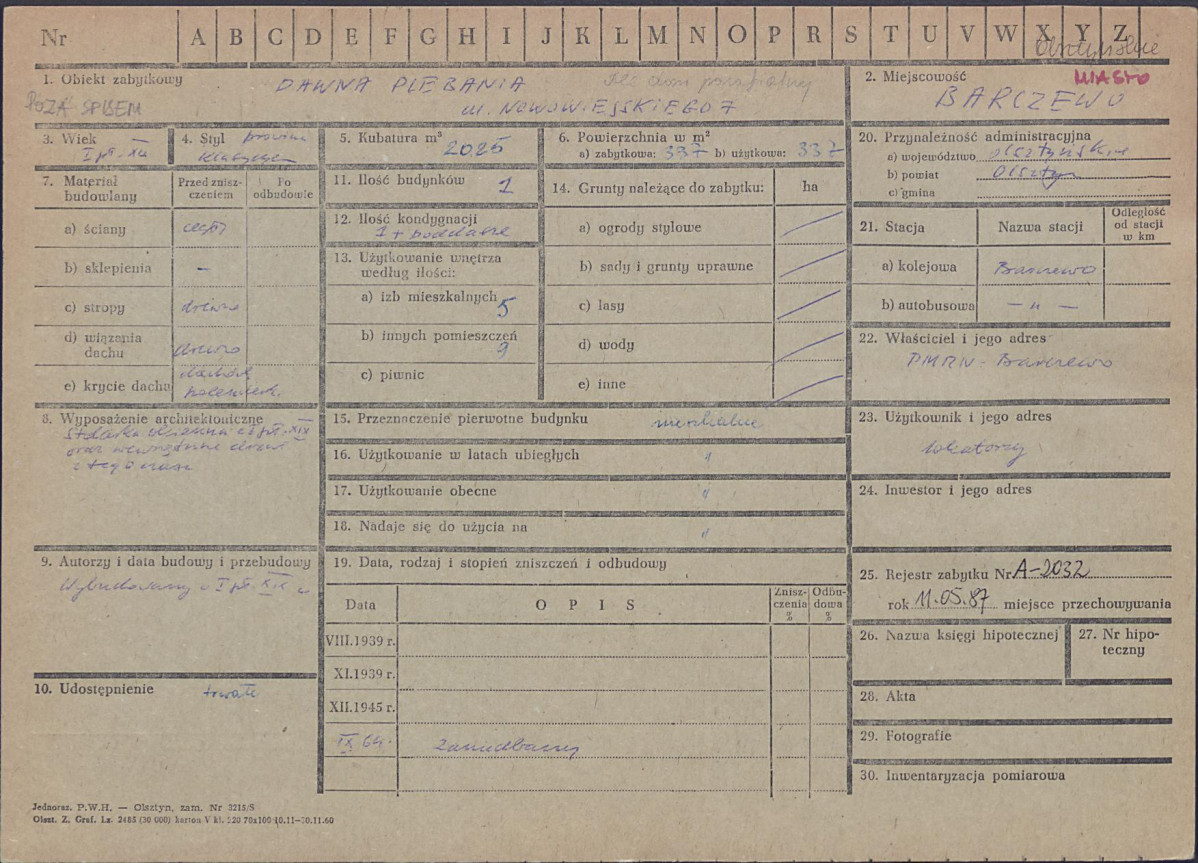 Nr A B C D E F G H I J K L M N O P R S T U V W X Y Z
1. Obiekt zabytkowy
DAWNA PLEBANIA
ul. NOWOWIEJSKIEGO 7
POZA SPISEM
2. Miejscowość
MIASTO
BARCZEWO
3. Wiek
4. Styl
5. Kubatura m³
2025
6. Powierzchnia w m²
a) zabytkowa: 337 b) użytkowa: 337
7. Materiał budowlany
Przed znisz-
czeniem
Po
odbudowie
a) ściany
b) sklepienia –
c) stropy drewno
d) wiązania
dachu drewno
e) krycie dachu
8. Wyposażenie architektoniczne
oraz wewnętrzne drzwi
z tego czasu
9. Autorzy i data budowy i przebudowy
Wybudowany w I poł. XIX w
10. Udostępnienie
11. Ilość budynków
1
12. Ilość kondygnacji
1 + poddasze
13. Użytkowanie wnętrza
według ilości:
a) izb mieszkalnych 5
b) innych pomieszczeń
9
c) piwnic
14. Grunty należące do zabytku: ha
a) ogrody stylowe
b) sady i grunty uprawne
c) lasy
d) wody
e) inne
15. Przeznaczenie pierwotne budynku mieszkalne
16. Użytkowanie w latach ubiegłych "
17. Użytkowanie obecne "
18. Nadaje się do użycia na "
19. Data, rodzaj i stopień zniszczeń i odbudowy
Data
O P I S
Znisz-
czenia
%
Odbu-
dowa
%
VIII.1939 r.
XI.1939 r.
XII.1945 r.
IX 64. Zaniedbany
20. Przynależność administracyjna
a) województwo olsztyńskie
b) powiat Olsztyn
c) gmina
21. Stacja
Nazwa stacji
Odległość
od stacji
w km
a) kolejowa Barczewo
b) autobusowa – " –
22. Właściciel i jego adres
PMRN - Barczewo
23. Użytkownik i jego adres
lokatorzy
24. Inwestor i jego adres
25. Rejestr zabytku Nr A-2032
rok 11.05.87 miejsce przechowywania
26. Nazwa księgi hipotecznej
27. Nr hipo-
teczny
28. Akta
29. Fotografie
30. Inwentaryzacja pomiarowa
Jednoraz. P.W.H. — Olsztyn, zam. Nr 3215/S
Olszt. Z. Graf. Lz. 2485 (30 000) karton V kl. 220 70x100 10.11—30.11.60